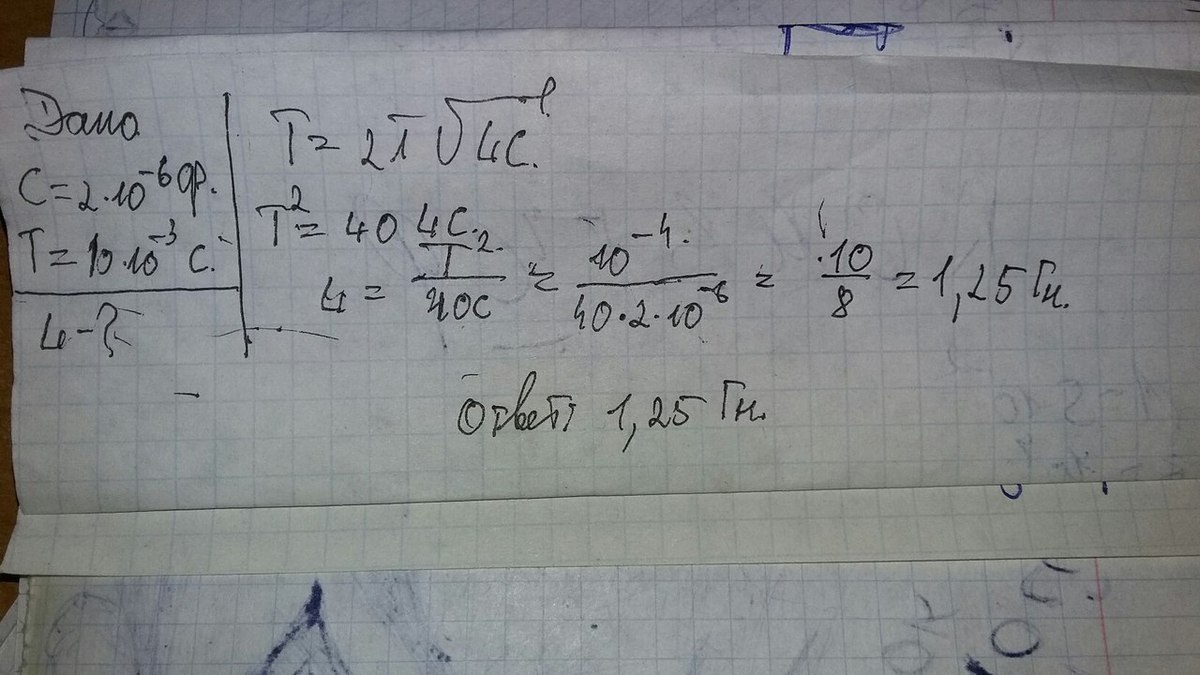 Дано
C = 2·10⁻⁶ Ф.
T = 10·10⁻³ с.
L - ?
T = 2π √LC.
T² = 40 LC.
L = T²/40C = 10⁻⁴/40·2·10⁻⁶ = 10/8 = 1,25 Гн.
Ответ 1,25 Гн.